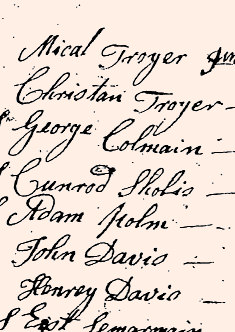 Mical Troyer Jun
Christan Troyer
George Colmain
Cunrod Sholis
Adam Holm
John Davis
Henrey Davis